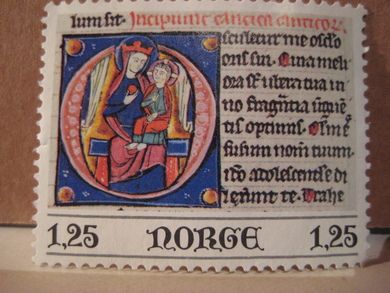 lum sit. Incipiunt cantica canticor
sculetur me osclo
oris sui. Quia meli
ora st ubera tua ui
no fragrātia ungue
tis optimis. Olm̄ ef
fusum nom̄ tuum.
id̄o adolescentule di
lexerunt te. Trahe
1,25 NORGE 1,25